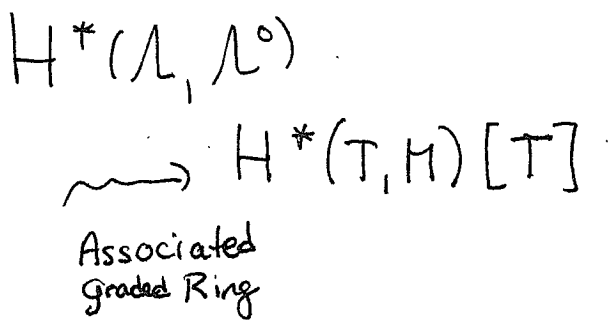 H*(Λ, Λ°)
H*(T, M) [T]
Associated
graded Ring